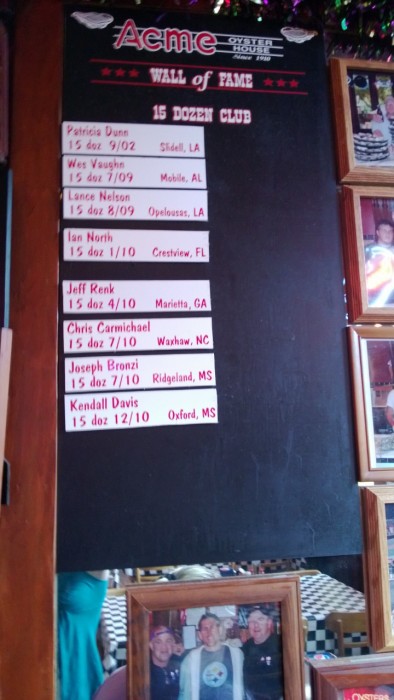 Acme
OYSTER
HOUSE
Since 1910
WALL of FAME
15 DOZEN CLUB
Patricia Dunn
15 doz 9/02 Slidell, LA
Wes Vaughn
15 doz 7/09 Mobile, AL
Lance Nelson
15 doz 8/09 Opelousas, LA
Ian North
15 doz 1/10 Crestview, FL
Jeff Renk
15 doz 4/10 Marietta, GA
Chris Carmichael
15 doz 7/10 Waxhaw, NC
Joseph Bronzi
15 doz 7/10 Ridgeland, MS
Kendall Davis
15 doz 12/10 Oxford, MS